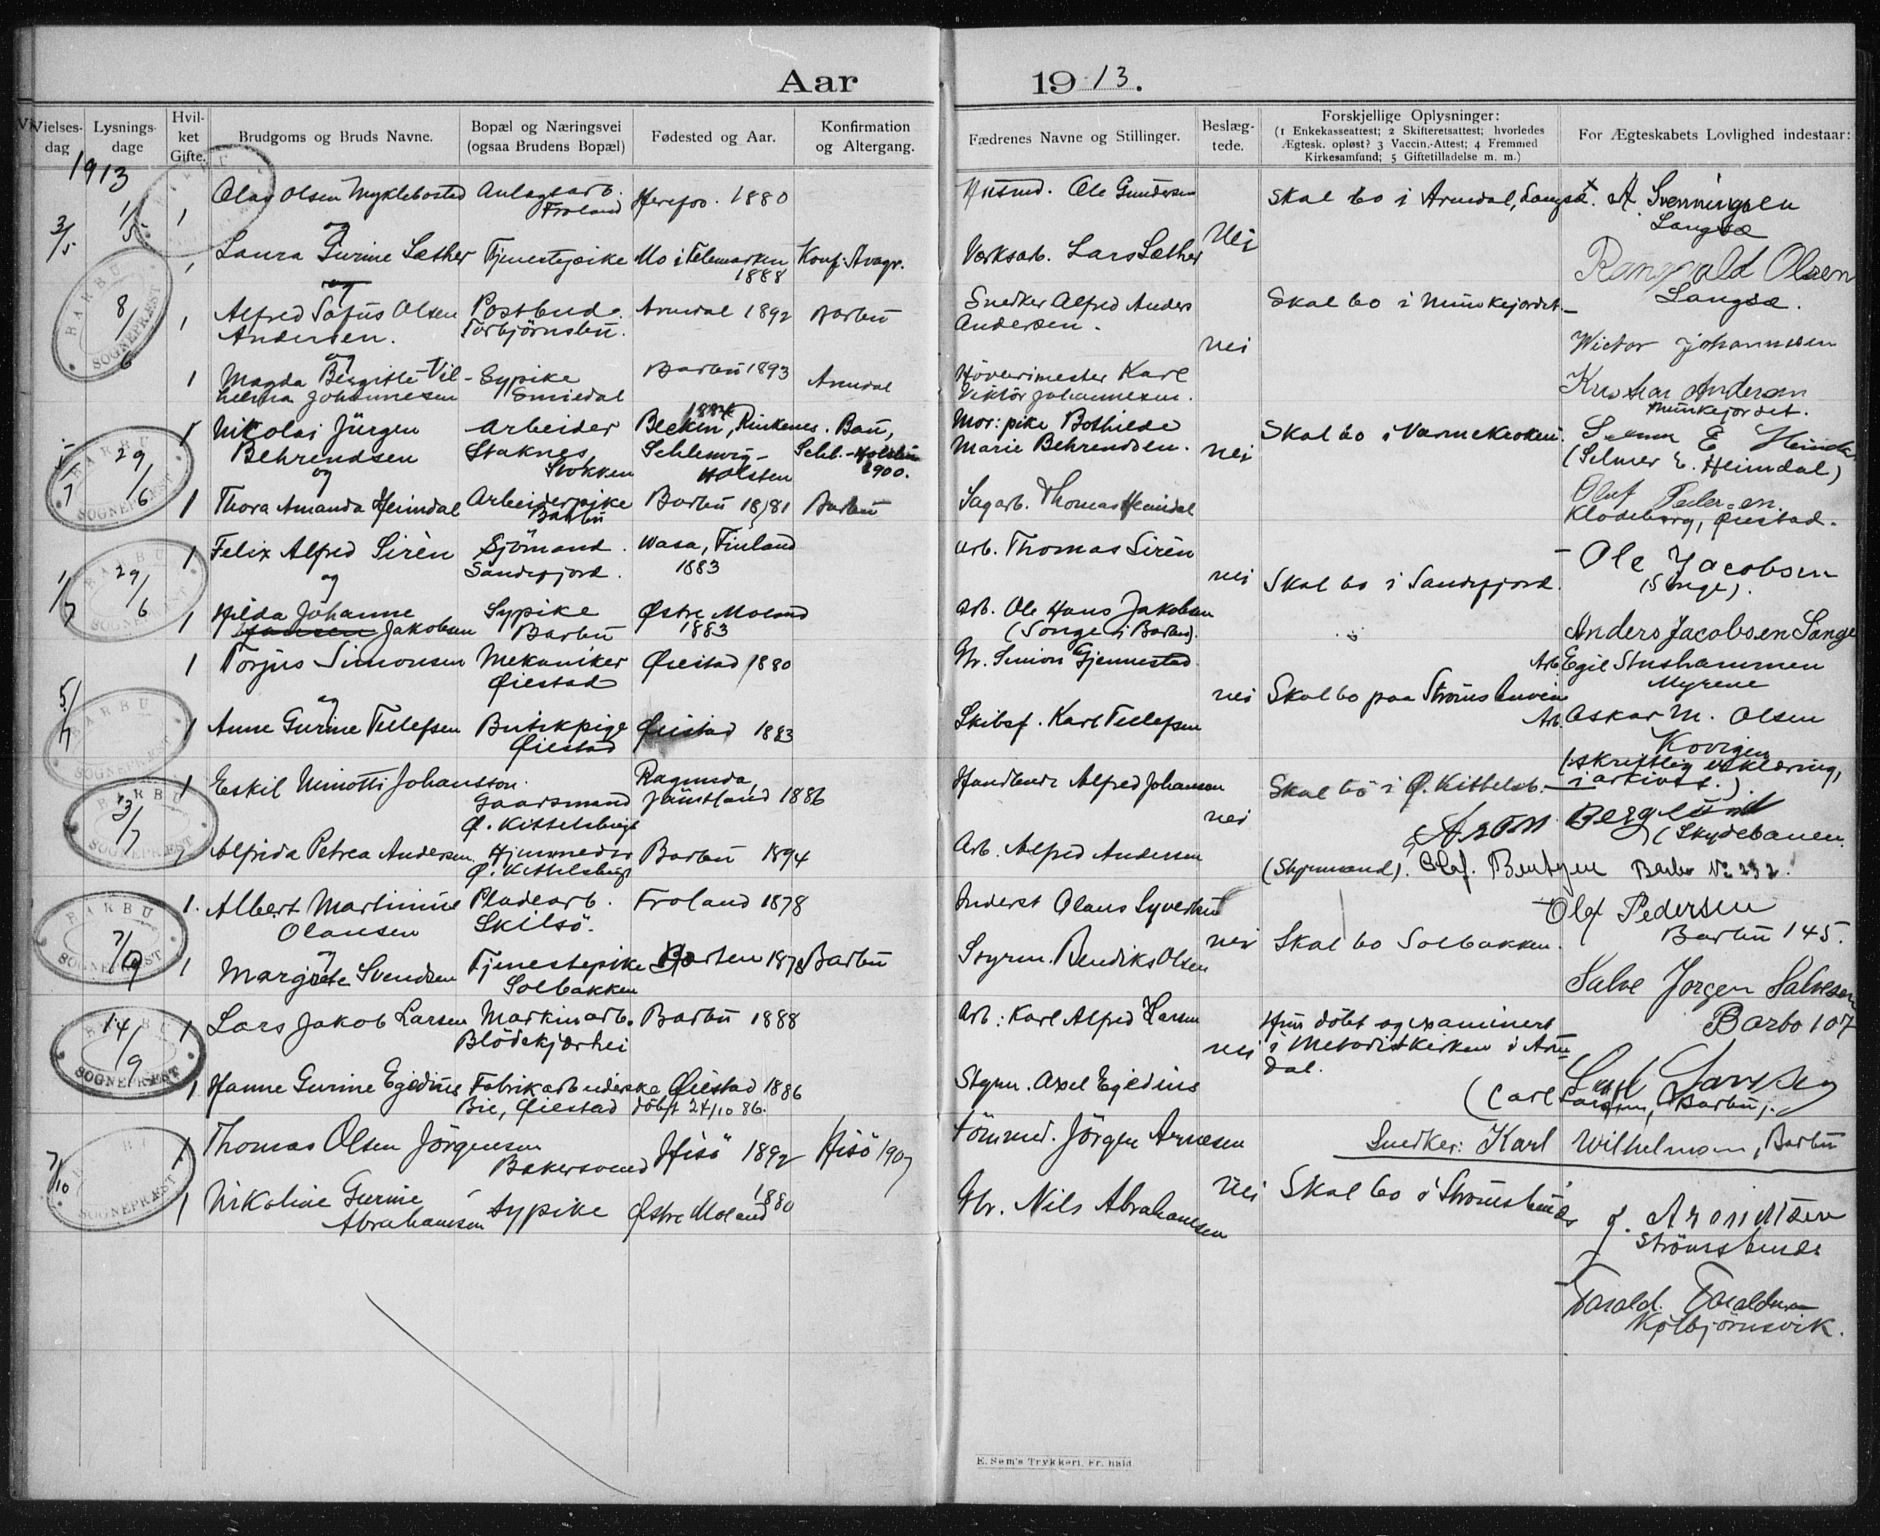 Aar 1913.
Vielses-dag
Lysnings-dage
Hvil-ket Gifte.
Brudgoms og Bruds Navne.
Bopæl og Næringsvei (ogsaa Brudens Bopæl)
Fødested og Aar.
Konfirmation og Altergang.
Fædrenes Navne og Stillinger.
Beslæg-tede.
Forskjellige Oplysninger:
(1 Enkekasseattest; 2 Skifteretsattest; hvorledes
Ægtesk. opløst? 3 Vaccin.-Attest; 4 Fremmed
Kirkesamfund; 5 Giftetilladelse m. m.)
For Ægteskabets Lovlighed indestaar:
1913
3/5 1/5 1 Olav Olsen Myklebostad Anlagsarb. Froland 1880 Ole Gundersen Skal bo i Arendal, Langsæ. A. Svenningsen
Langsæ
og
1 Laura Gurine Sæther Tjenestepike Mo i Telemarken 1888 Verksarb. Lars Sæther nei
Olsen
Langsæ.
og
8/6 1 Alfred Sofus Olsen Andersen. Postbud. Torbjörnsbu. Arendal 1892 Barbu Snedker Alfred Anders Andersen. Skal bo i Munkejordet.
og
1 Magda Bergitte Vilhelma Johannesen Sypike Barbu 1893 Arendal Karl Viktor Johannesen. nei
Wictor Johannesen
Andersen
Munkejordet.
29/6 1 Nikolai Jürgen Behrendsen Arbeider Staknes Stokken Rinkenes. Schlesvig-Holsten Bau, Schl.-Holstein 1900. Mor: pike Bothilde Marie Behrendsen. nei
(Selmer E. Heimdal)
og
1 Thora Amanda Heimdal Arbeiderpike Barbu Barbu 1881 Barbu Sagarb. Thomas Heimdal
Olaf Pedersen.
Klodeborg, Øiestad.
1/7 29/6 1 Felix Alfred Sirèn Sjömand Sandefjord. Wasa, Finland 1883 Arb. Thomas Sirèn nei Skal bo i Sandefjord. Ole Jacobsen
(Songe).
og
1 Hilda Johanne Jansen Jakobsen Sypike Barbu Østre Moland 1883 Arb. Ole Hans Jakobsen
(Songe i Barbu).
Anders Jacobsen Sange
5/7 1 Torjus Simonsen Mekaniker Øiestad Øiestad 1880 Gbr. Simon Gjennestad nei Arb. Egil Stushammen
Myrene
og
1 Anne Gurine Tellefsen Butikpige Øiestad Øiestad 1883 Skibsf. Karl Tellefsen Arb. Oskar M. Olsen
(skriftlig erklæring, i arkivet.)
13/7 1 Eskil Minotti Johansson Gaardsmand Ø. Kittelsbugt Ragunda, Jämtland 1886 Alfred Johansson nei Skal bo i Ø. Kittelsb. Berglund
(Skydebanen
Alfrida Petrea Andersen Ø. Kittelsbugt Barbu 1894 Arb. Alfred Andersen
(Styrmand). Olaf. Bentzen Barbo No 232.
7/9 1. Albert Martinius Olausen Pladearb. Skilsö. Froland 1878 Olaus Syvertsen nei Skal bo Solbakken. Olaf Pedersen
Barbu 145.
og
1 Margrete Svendsen Tjenestepike Solbakken 1878 Barbu Styrm. Bendiks Olsen
Salve Jørgen Salvesen
Barbo 107
14/9 1 Lars Jakob Larsen Maskinarb. Blödekjærhei Barbu 1888 Arb: Karl Alfred Larsen nei Hun döbt og examinert
i Metodistkirken i Arendal.
1 Hanne Gurine Egedius Fabrikarbeiderske Bie, Øiestad Øiestad 1886 döbt 24/10 86. Styrm. Axel Egedius
(Carl Larssen, Barbu).
7/10 1 Thomas Olsen Jörgensen Bakersvend Hisö 1892 Hisö 1907 Tömmd. Jörgen Arnesen Snedker: Karl Wilhelmsen, Barbu
1 Nikoline Gurine Abrahamsen Sypike Østre Moland 1880 Gbr. Nils Abrahamsen nei Skal bo i Strömsbunes
J. Arontsen
Strömsbunes
Tarald. Taraldsen
Kolbjörnsvik.
BARBU SOGNEPRÆST
E. Sem's Trykkeri, Fr.hald.